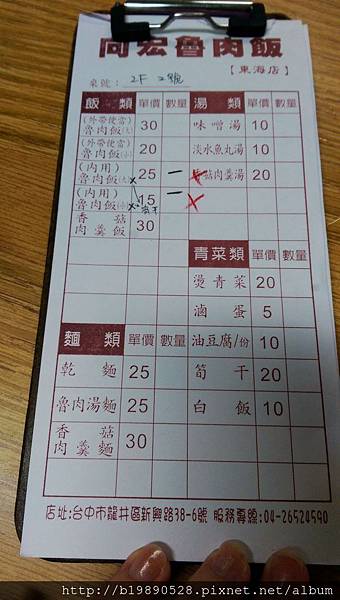 阿宏魯肉飯
【東海店】
桌號: 2F 2號
飯 類 單價 數量 湯 類 單價 數量
(外帶便當) 魯肉飯(大) 30 味噌湯 10
(外帶便當) 魯肉飯(小) 20 淡水魚丸湯 10
(內用) 魯肉飯(大) 25 一 菇肉羹湯 20
(內用) 魯肉飯(小) 15 一
香菇肉羹飯 30
青菜類 單價 數量
燙青菜 20
滷蛋 5
麵 類 單價 數量 油豆腐/份 10
乾麵 25 筍干 20
魯肉湯麵 25 白飯 10
香菇肉羹麵 30
店址:台中市龍井區新興路38-6號 服務專線:04-26524590
http://b19890528.pixnet.net/album